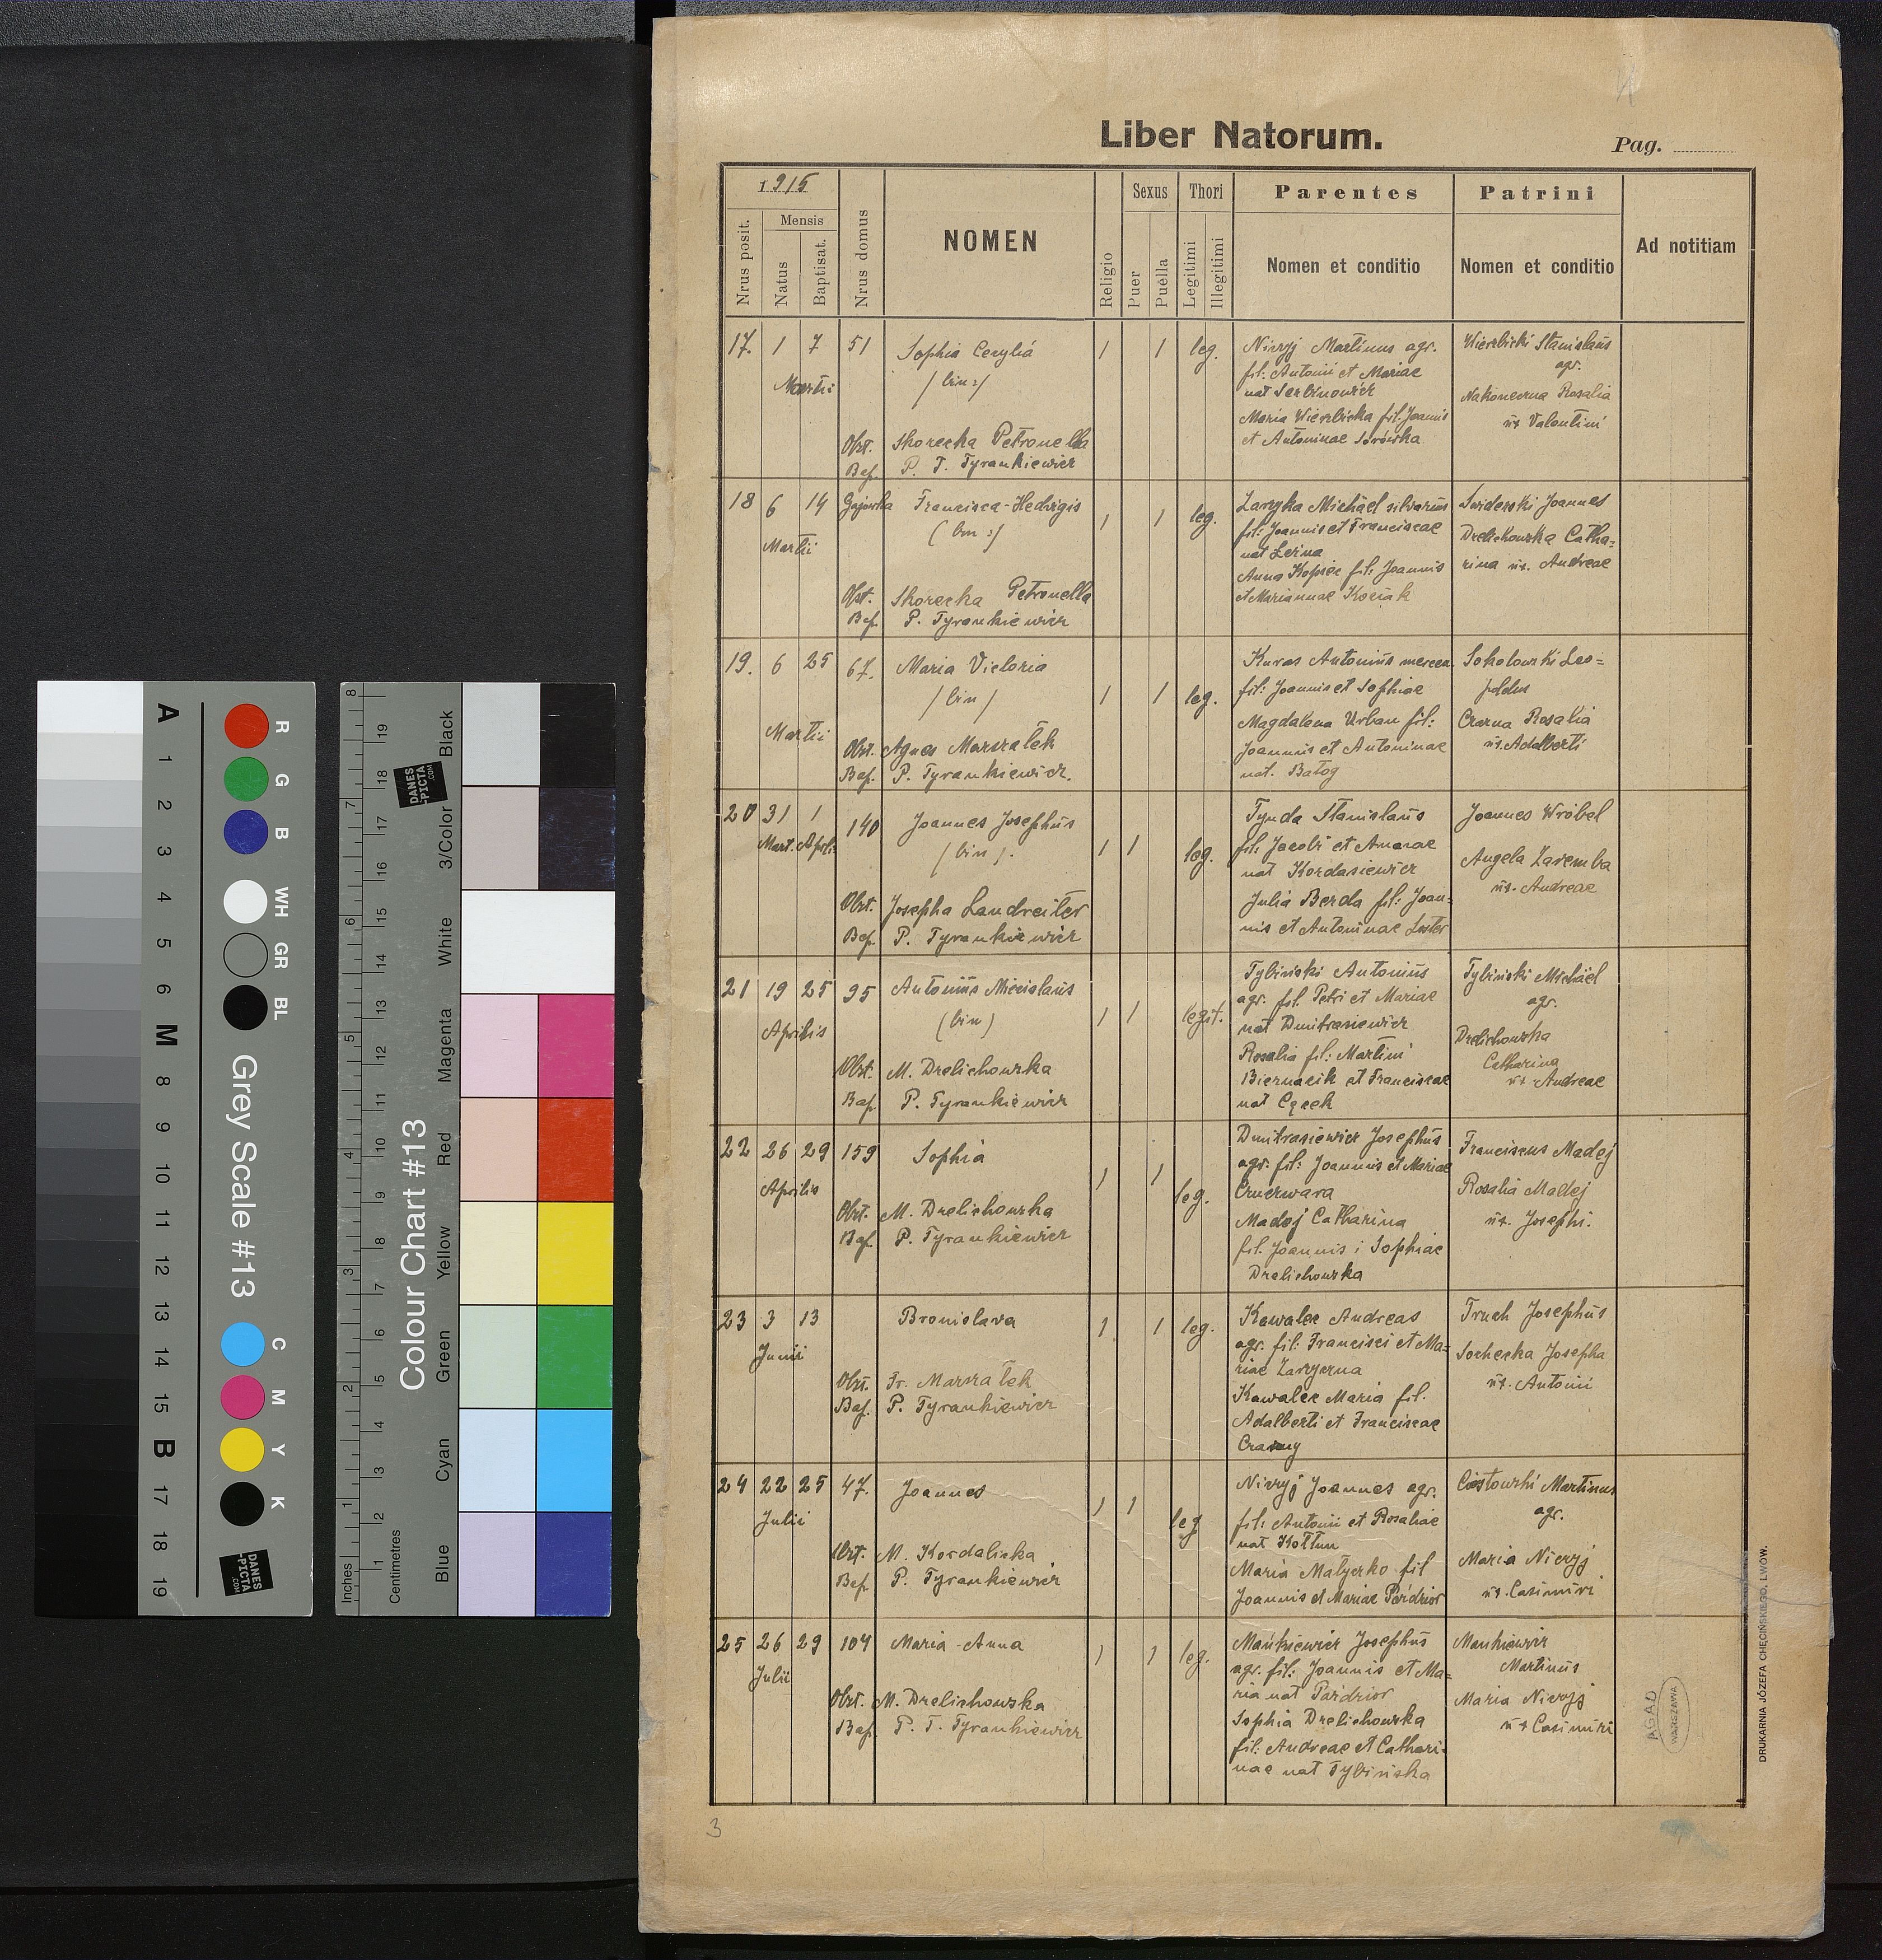 Liber Natorum.
Pag.
1915
Mensis
Nrus posit.
Natus
Baptisat.
Nrus domus
NOMEN
Religio
Sexus
Puer
Puella
Thori
Legitimi
Illegitimi
Parentes
Nomen et conditio
Patrini
Nomen et conditio
Ad notitiam
17. 1 7 51
Martii
Sophia Cecylia
/ bin :/
Obst. Skorecka Petronella
Bap. P. T. Tyrankiewicz
1 1 leg.
Niezyj Martinus agr.
fil: Antonii et Mariae
nat Serbinowicz
Maria Wierzbicka fil: Joannis
et Antoninae
Wierzbicki Stanislaus
agr.
Nakoneczna Rosalia
ux Valentini
18 6 14 Gajówka
Martii
Francisca-Hedvigis
( bin :)
Obst. Skorecka Petronella
Bap. P. Tyrankiewicz
1 1 leg.
Michael silvarius
fil: Joannis et Franciscae
nat
Anna Kopiec fil: Joannis
et Mariannae Kociak
Joannes
Drelichowska Catha=
rina ux. Andreae
19. 6 25 67.
Martii
Maria Victoria
/ bin /
Obst. Agnes Marszałek
Bap. P. Tyrankiewicz.
1 1 leg.
Kuras Antonius mercen.
fil: Joannis et Sophiae
Magdalena Urban fil:
Joannis et Antoninae
nat. Batog
Sokolowski Leo=
poldus
Czerna Rosalia
ux. Adalberti
20 31 1 140
Mart. April.
Joannes Josephus
/ bin /.
Obst. Josepha Landreiter
Bap. P. Tyrankiewicz
1 1 leg.
Tynda Stanislaus
fil: Jacobi et Annae
nat Kordasiewicz
Julia Berda fil: Joan=
nis et Antoninae
Joannes Wróbel
Angela Zaremba
ux. Andreae
21 19 25 95
Aprilis
Antonius Miecislaus
(bin)
Obst. M. Drelichowska
Bap. P. Tyrankiewicz
1 1 legit.
Tybiński Antonius
agr. fil. Petri et Mariae
nat Dmitrasiewicz
Rosalia fil: Martini
Biernacik et Franciscae
nat
Tybiński Michael
agr.
Drelichowska
Catharina
ux Andreae
22 26 29 159
Aprilis
Sophia
Obst. M. Drelichowska
Bap. P. Tyrankiewicz
1 1 leg.
Dmitrasiewicz Josephus
agr. fil: Joannis et Mariae
Madej Catharina
fil. Joannis i Sophiae
Drelichowska
Franciscus Madej
Rosalia Madej
ux. Josephi.
23 3 13
Junii
Bronislava
Obst. Fr. Marszałek
Bap. P. Tyrankiewicz
1 1 leg.
Kawalec Andreas
agr. fil: Francisci et Ma=
riae
Kawalec Maria fil.
Adalberti et Franciscae
Truch Josephus
Sochecka Josepha
ux. Antonii
24 22 25 47.
Julii
Joannes
Obst. M. Kordalicka
Bap. P. Tyrankiewicz
1 1 leg
Niezyj Joannes agr.
fil: Antonii et Rosaliae
nat Kołtun
Maria Matyerko fil
Joannis et Mariae Paździor
Martinus
agr.
Maria Niezyj
ux Casimiri
25 26 29 104
Julii
Maria-Anna
Obst. M. Drelichowska
Bap. P. T. Tyrankiewicz
1 1 leg.
Mańkiewicz Josephus
agr. fil: Joannis et Ma=
ria nat Paździor
Sophia Drelichowska
fil: Andreae et Cathari=
nae nat Tybińska
Mankiewicz
Martinus
Maria Niezyj
ux Casimiri
3
AGAD
WARSZAWA
DRUKARNIA JÓZEFA CHĘCIŃSKIEGO, LWÓW.
Grey Scale #13
A 1 2 3 4 5 6 M 8 9 10 11 12 13 14 15 B 17 18 19
R G B WH GR BL C M Y K
DANES
-PICTA
.COM
Colour Chart #13
Inches 1 2 3 4 5 6 7 8
Centimetres 1 2 3 4 5 6 7 8 9 10 11 12 13 14 15 16 17 18 19
Blue Cyan Green Yellow Red Magenta White 3/Color Black
DANES
-PICTA
.COM